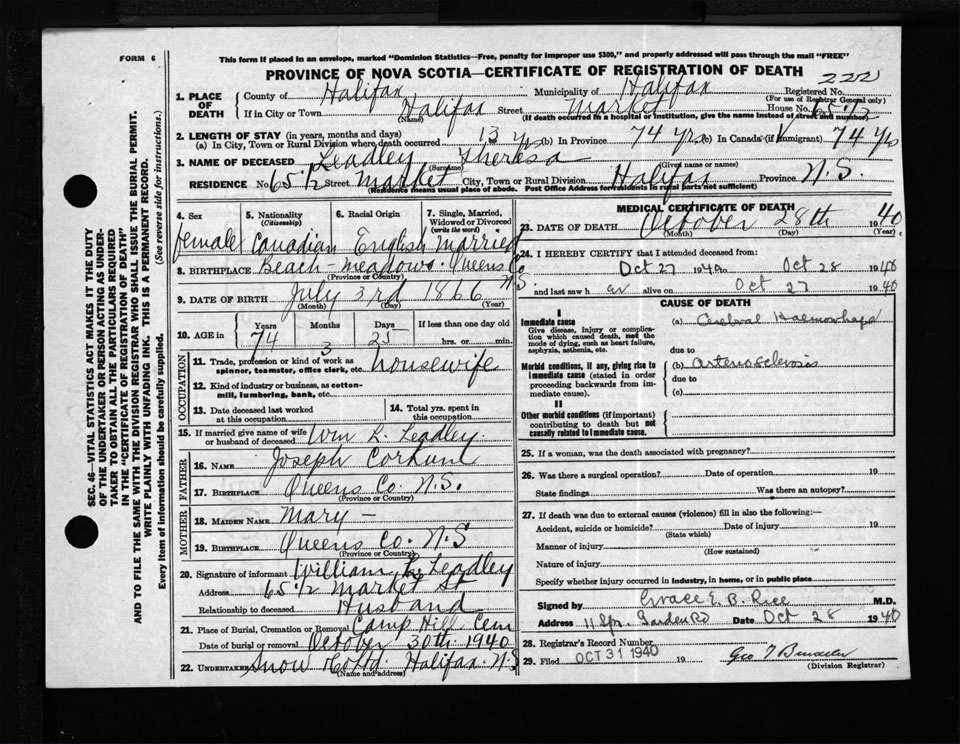 FORM 6
This form if placed in an envelope, marked "Dominion Statistics—Free, penalty for improper use $300," and properly addressed will pass through the mail "FREE"
PROVINCE OF NOVA SCOTIA—CERTIFICATE OF REGISTRATION OF DEATH
222
1. PLACE OF DEATH
County of Halifax Municipality of Halifax Registered No.
(For use of Registrar General only)
If in City or Town Halifax Street Market House No. 65 1/2
(Name) (If death occurred in a hospital or institution, give the name instead of street and number)
2. LENGTH OF STAY (in years, months and days)
(a) In City, Town or Rural Division where death occurred 13 yrs (b) In Province 74 yrs (c) In Canada (if immigrant) 74 yrs
3. NAME OF DECEASED Leadley Theresa
(Surname) (Given name or names)
RESIDENCE No. 65 1/2 Street Market City, Town or Rural Division Halifax Province N.S.
(Residence means usual place of abode. Post Office Address for residents in rural parts not sufficient)
4. Sex female
5. Nationality (Citizenship) Canadian
6. Racial Origin English
7. Single, Married, Widowed or Divorced (write the word) Married
8. BIRTHPLACE Beach-meadows. Queens Co N.S.
(Province or Country)
9. DATE OF BIRTH July 3rd 1866
(Month) (Day) (Year)
10. AGE in Years 74 Months 3 Days 25 If less than one day old hrs. or min.
OCCUPATION
11. Trade, profession or kind of work as spinner, teamster, office clerk, etc. housewife
12. Kind of industry or business, as cotton-mill, lumbering, bank, etc.
13. Date deceased last worked at this occupation
14. Total yrs. spent in this occupation
15. If married give name of wife or husband of deceased Wm L. Leadley.
FATHER
16. NAME Joseph Corkum
17. BIRTHPLACE Queens Co. N.S.
(Province or Country)
MOTHER
18. MAIDEN NAME Mary —
19. BIRTHPLACE Queens Co. N.S
(Province or Country)
20. Signature of informant William L. Leadley
Address 65 1/2 Market St
Relationship to deceased Husband
21. Place of Burial, Cremation or Removal Camp Hill Cem
Date of burial or removal October 30th 1940
22. UNDERTAKER Snow & Co Ltd. Halifax. N.S
(Name and address)
MEDICAL CERTIFICATE OF DEATH
23. DATE OF DEATH October 28th 1940
(Month) (Day) (Year)
24. I HEREBY CERTIFY that I attended deceased from:
Oct 27 1940 to Oct 28 1940
and last saw her alive on Oct 27 1940
CAUSE OF DEATH
I
Immediate cause
Give disease, injury or complication which caused death, not the mode of dying, such as heart failure, asphyxia, asthenia, etc.
(a) Cerebral Haemorrhage
due to
Morbid conditions, if any, giving rise to immediate cause (stated in order proceeding backwards from immediate cause).
(b) Arteriosclerosis
due to
(c)
II
Other morbid conditions (if important) contributing to death but not causally related to immediate cause.
25. If a woman, was the death associated with pregnancy?
26. Was there a surgical operation? Date of operation 19
State findings Was there an autopsy?
27. If death was due to external causes (violence) fill in also the following:—
Accident, suicide or homicide? Date of injury 19
(State which)
Manner of injury
(How sustained)
Nature of injury
Specify whether injury occurred in industry, in home, or in public place
Signed by Grace E. B. Rice M.D.
Address 11 Spr. Garden Rd Date Oct 28 1940
28. Registrar's Record Number
29. Filed OCT 31 1940 19
Geo T
(Division Registrar)
SEC. 46—VITAL STATISTICS ACT MAKES IT THE DUTY
OF THE UNDERTAKER OR PERSON ACTING AS UNDER-
TAKER TO OBTAIN ALL THE PARTICULARS REQUIRED
IN THE "CERTIFICATE OF REGISTRATION OF DEATH"
AND TO FILE THE SAME WITH THE DIVISION REGISTRAR WHO SHALL ISSUE THE BURIAL PERMIT.
WRITE PLAINLY WITH UNFADING INK. THIS IS A PERMANENT RECORD.
Every item of information should be carefully supplied. (See reverse side for instructions.)